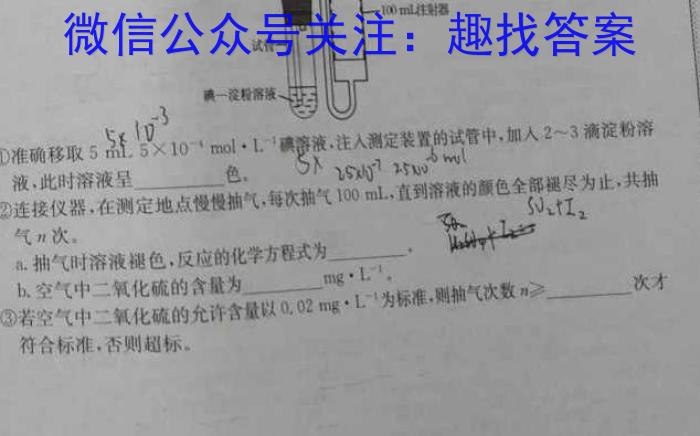 100 mL注射器
微信公众号关注：趣找答案
试管
碘—淀粉溶液
5×10⁻³
①准确移取 5 mL 5×10⁻⁴ mol·L⁻¹碘溶液,注入测定装置的试管中,加入 2～3 滴淀粉溶
5×
25×10⁻⁷ 25×10⁻⁶ mol
液,此时溶液呈________色。
②连接仪器,在测定地点慢慢抽气,每次抽气 100 mL,直到溶液的颜色全部褪尽为止,共抽
气 n 次。
SO₂+I₂
a. 抽气时溶液褪色,反应的化学方程式为________。
b. 空气中二氧化硫的含量为________mg·L⁻¹。
③若空气中二氧化硫的允许含量以 0.02 mg·L⁻¹为标准,则抽气次数 n≥________次才
符合标准,否则超标。